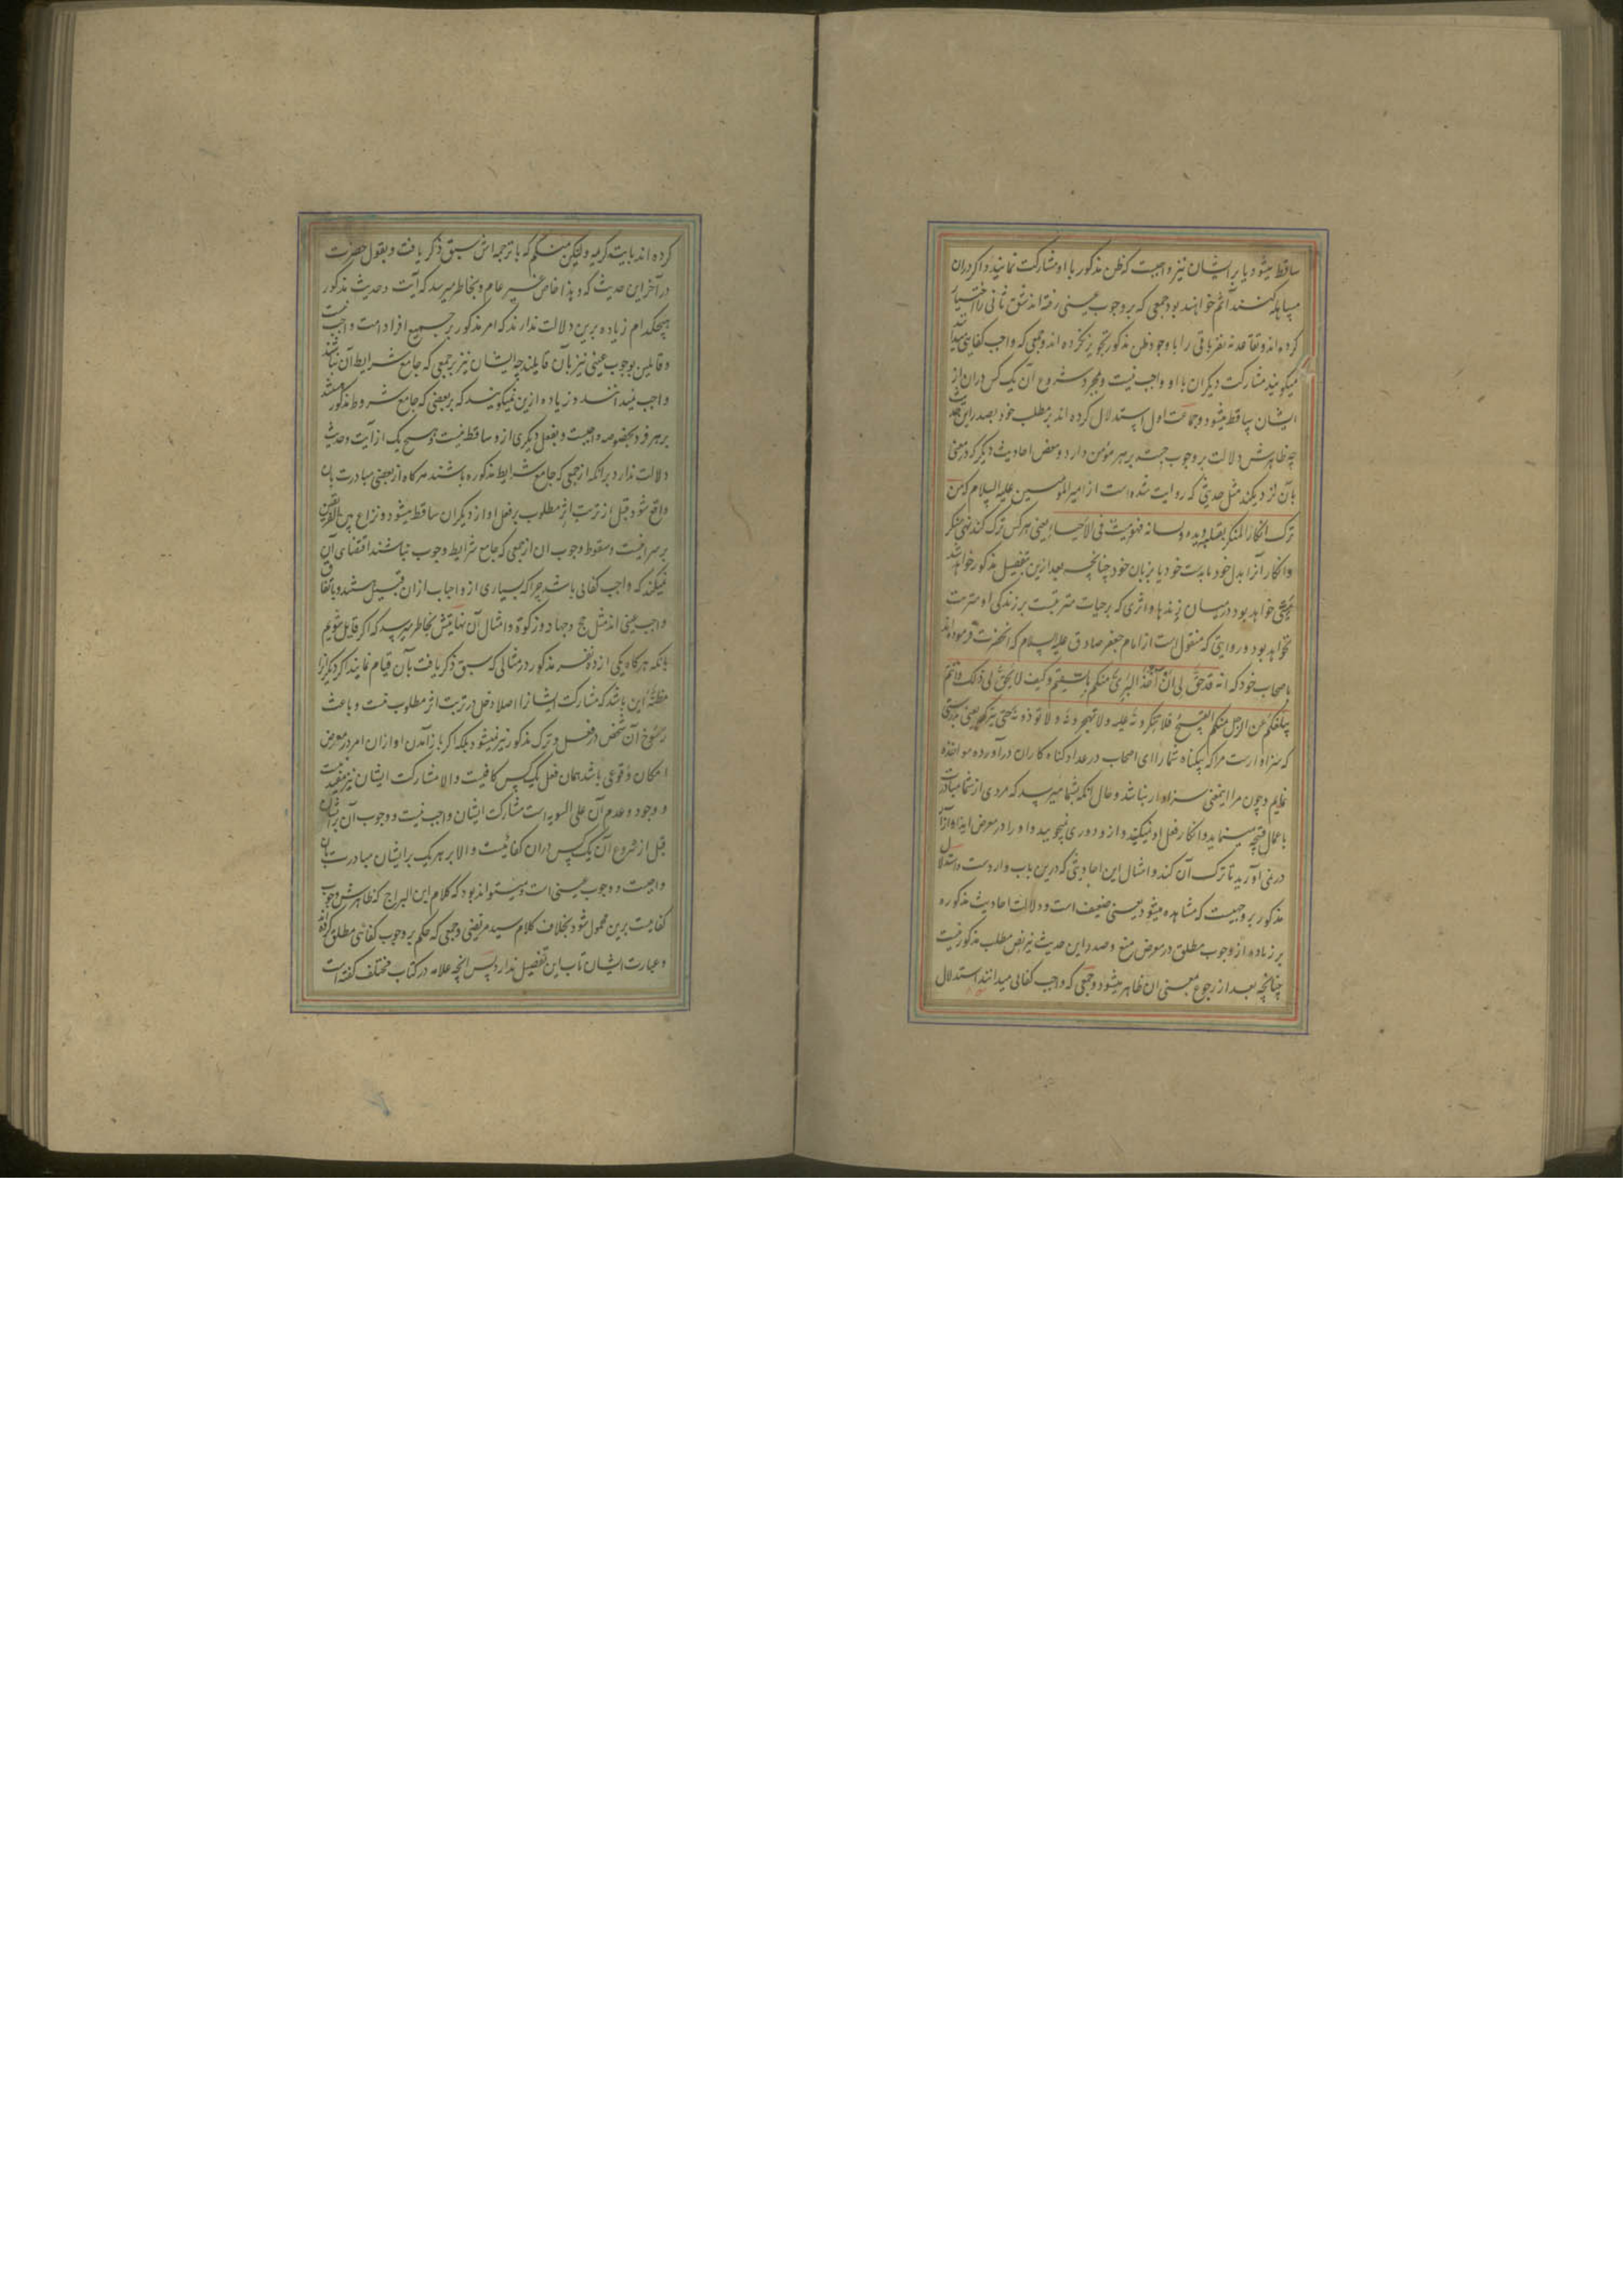 ساقط میشود یا بر ایشان نیز واجبست که ظن مذکور با او مشارکت نمایند و اکر دران
مساهله کنند آثم خواهند بود جمعی که بر وجوب عینی رفته اند شق ثانی را اختیار
کرده اند و تقاعد نه نفر باقی را با وجود ظن مذکور تجویز نکرده اند و جمعی که واجب کفایی
میکویند مشارکت دیکران با او واجب نیست و بمجرد شروع آن یک کس دران از
ایشان ساقط میشود و جماعت اول استدلال کرده اند بر مطلب خود بصدر این حدیث
چه ظاهرش دلالت بر وجوب حسبه بر هر مؤمن دارد و بعض احادیث دیکر که در معنی
بآن نزدیکند مثل حدیثی که روایت شده است از امیر المؤمنین علیه السلام که من
ترک انکار المنکر بقلبه و یده و لسانه فهو میت فی الاحیاء یعنی هر کس ترک کند نهی منکر
و انکار آنرا بدل خود یا بدست خود یا بزبان خود چنانچه بعد ازین بتفصیل مذکور خواهد شد
خواهد بود در میان زنده ها و اثری که بر حیات مترتبست بر زندکی او مترتب
نخواهد بود و روایتی که منقول است از امام جعفر صادق علیه السلام که انحضرت فرموده اند
باصحاب خود که انه قد حق لی ان آخذ البرئ منکم بالسقیم و کیف لا یحق لی ذلک و انتم
یبلغکم عن الرجل منکم القبیح فلا تنکرونه علیه و لا تهجرونه و لا توذونه حتی یترکه یعنی بدرستی
که سزاوارست مرا که بیکناه شما را ای اصحاب در عداد کناه کاران در آورده مواخذه
نمایم و چون مرا اینمعنی سزاوار نباشد و حال آنکه بشما میرسد که مردی از شما مبادرت
باعمال قبیحه مینماید و انکار فعل او نمیکنید و ازو دوری نمیجویید و او را در معرض ایذا و آزار
در نمی آورید تا ترک آن کند و امثال این احادیثی که درین باب واردست و استدلال
مذکور بر وجهیست که مشاهده میشود یعنی ضعیف است و دلالت احادیث مذکوره
بر زیاده از وجوب مطلق در معرض منع و صدر این حدیث نیز نص مطلب مذکور نیست
چنانچه بعد از رجوع بمعنی ان ظاهر میشود و جمعی که واجب کفائی میدانند استدلال
کرده اند بایت کریمه ولتکن منکم که با ترجمه اش سبق ذکر یافت و بقول حضرت
در آخر این حدیث که و هذا خاص غیر عام و بخاطر میرسد که آیت و حدیث مذکور
هیچکدام زیاده برین دلالت ندارند که امر مذکور بر جمیع افراد امت واجب نیست
و قایلین بوجوب عینی نیز بآن قایلند چه ایشان نیز بر جمعی که جامع شرایط آن نباشند
واجب نمیدانند و زیاده ازین نمیکویند که بر بعضی که جامع شروط مذکور باشند
بر هر فرد بخصوصه واجبست و بفعل دیکری ازو ساقط نیست و هیچ یک از آیت و حدیث
دلالت ندارد برانکه از جمعی که جامع شرایط مذکوره باشند هرکاه از بعضی مبادرت بان
واقع شود قبل از ترتب اثر مطلوب بر فعل او از دیکران ساقط میشود و نزاع بین الفریقین
بر سر اینست و سقوط وجوب ان از جمعی که جامع شرایط وجوب نباشند اقتضای آن
نمیکند که واجب کفائی باشد چرا که بسیاری از واجبات ازان قبیل هستند و باتفاق
واجب عینی اند مثل حج و جهاد و زکوة و امثال آن نهایتش بخاطر میرسد که اکر قایل شویم
بانکه هرکاه یکی از ده نفر مذکور در مثالی که سبق ذکر یافت بآن قیام نمایند اکر دیکرانرا
مظنه این باشد که مشارکت ایشانرا اصلا دخل در ترتب اثر مطلوب نیست و باعث
رسوخ آن شخص در فعل و ترک مذکور نیز نمیشود بلکه اکر باز آمدن او ازان امر در معرض
امکان وقوعی باشد همان فعل یک کس کافیست و الا مشارکت ایشان نیز مفید نیست
و وجود و عدم آن علی السویه است مشارکت ایشان واجب نیست و وجوب آن بر ایشان
قبل از شروع آن یک کس دران کفائیست و الا بر هر یک بر ایشان مبادرت بان
واجبست و وجوب عینی است و میتواند بود که کلام ابن البراج که ظاهرش وجوب
کفائیست برین محمول شود بخلاف کلام سید مرتضی و جمعی که حکم بر وجوب کفائی مطلق کرده اند
و عبارت ایشان تاب این تفصیل ندارد پس انچه علامه در کتاب مختلف کفته است